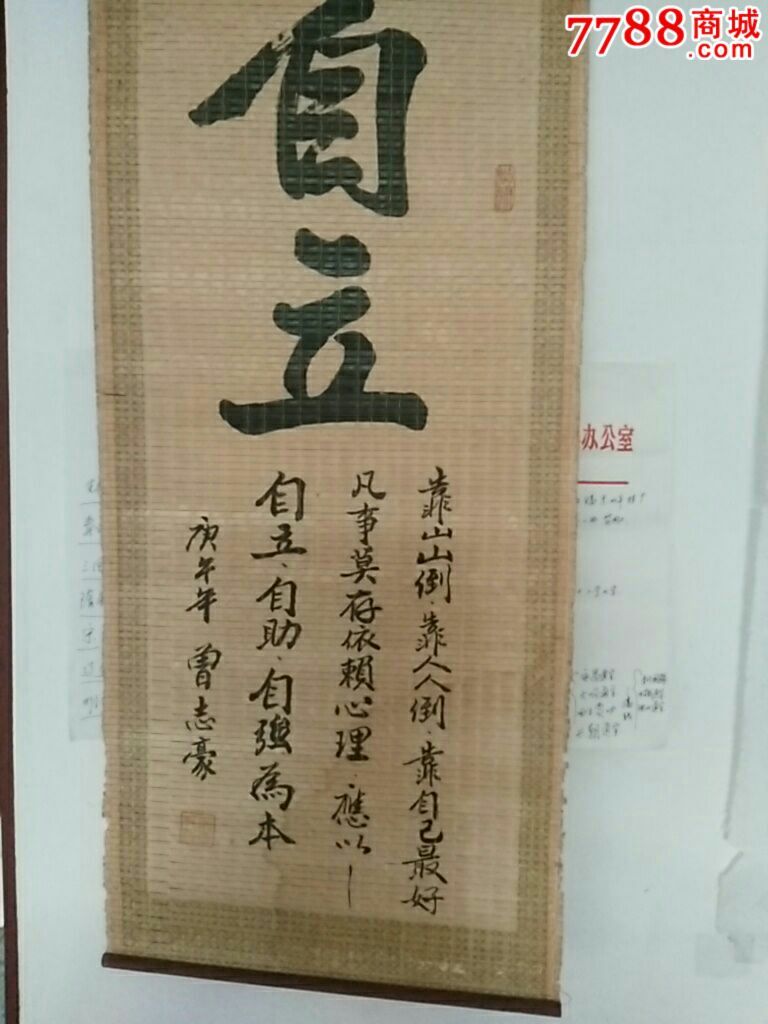 7788商城
.com
自
立
靠山山倒·靠人人倒·靠自己最好
凡事莫存依賴心理·應以
自立·自助·自強為本
庚午年 曾志豪
办公室